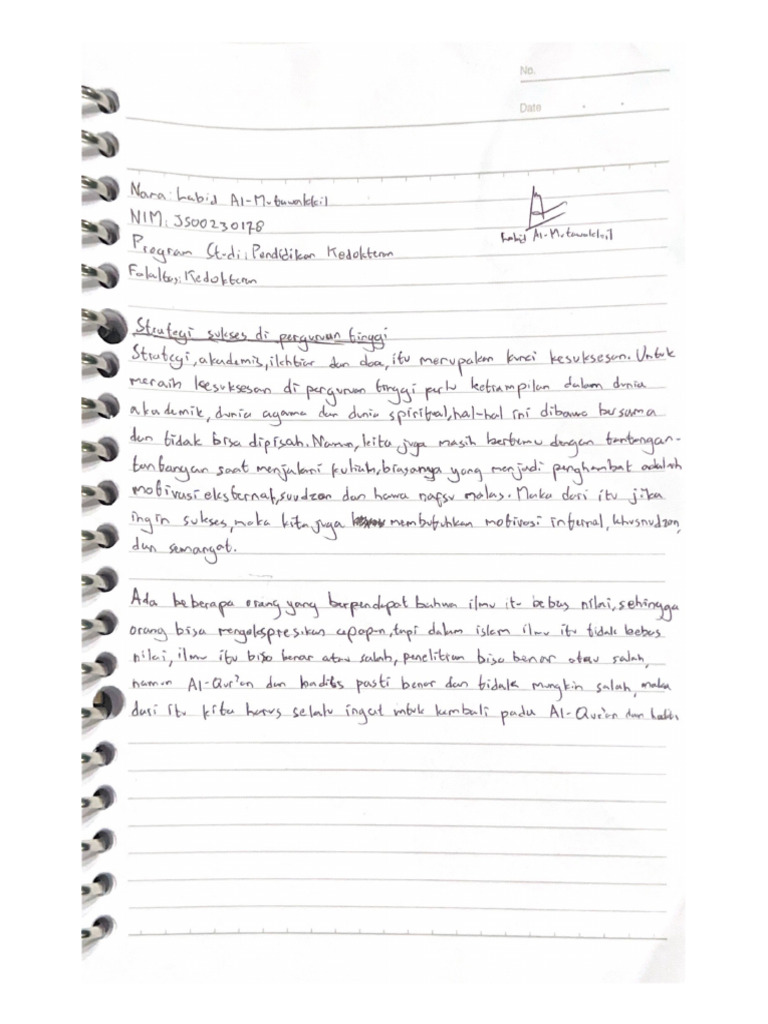 No.
Date
Nama: Labid Al-Mutawakkil
NIM: J500230178
Program Studi: Pendidikan Kedokteran
Fakultas: Kedokteran
Labid Al-Mutawakkil
Strategi sukses di perguruan tinggi
Strategi, akademis, ikhtiar dan doa, itu merupakan kunci kesuksesan. Untuk
meraih kesuksesan di perguruan tinggi perlu ketrampilan dalam dunia
akademik, dunia agama dan dunia spiritual, hal-hal ini dibawa bersama
dan tidak bisa dipisah. Namun, kita juga masih bertemu dengan tantangan-
tantangan saat menjalani kuliah, biasanya yang menjadi penghambat adalah
motivasi eksternal, suudzon dan hawa nafsu malas. Maka dari itu jika
ingin sukses, maka kita juga membutuhkan motivasi internal, khusnudzon,
dan semangat.
Ada beberapa orang yang berpendapat bahwa ilmu itu bebas nilai, sehingga
orang bisa mengekspresikan apapun, tapi dalam islam ilmu itu tidak bebas
nilai, ilmu itu bisa benar atau salah, penelitian bisa benar atau salah,
namun Al-Qur'an dan hadits pasti benar dan tidak mungkin salah, maka
dari itu kita harus selalu ingat untuk kembali pada Al-Qur'an dan hadits